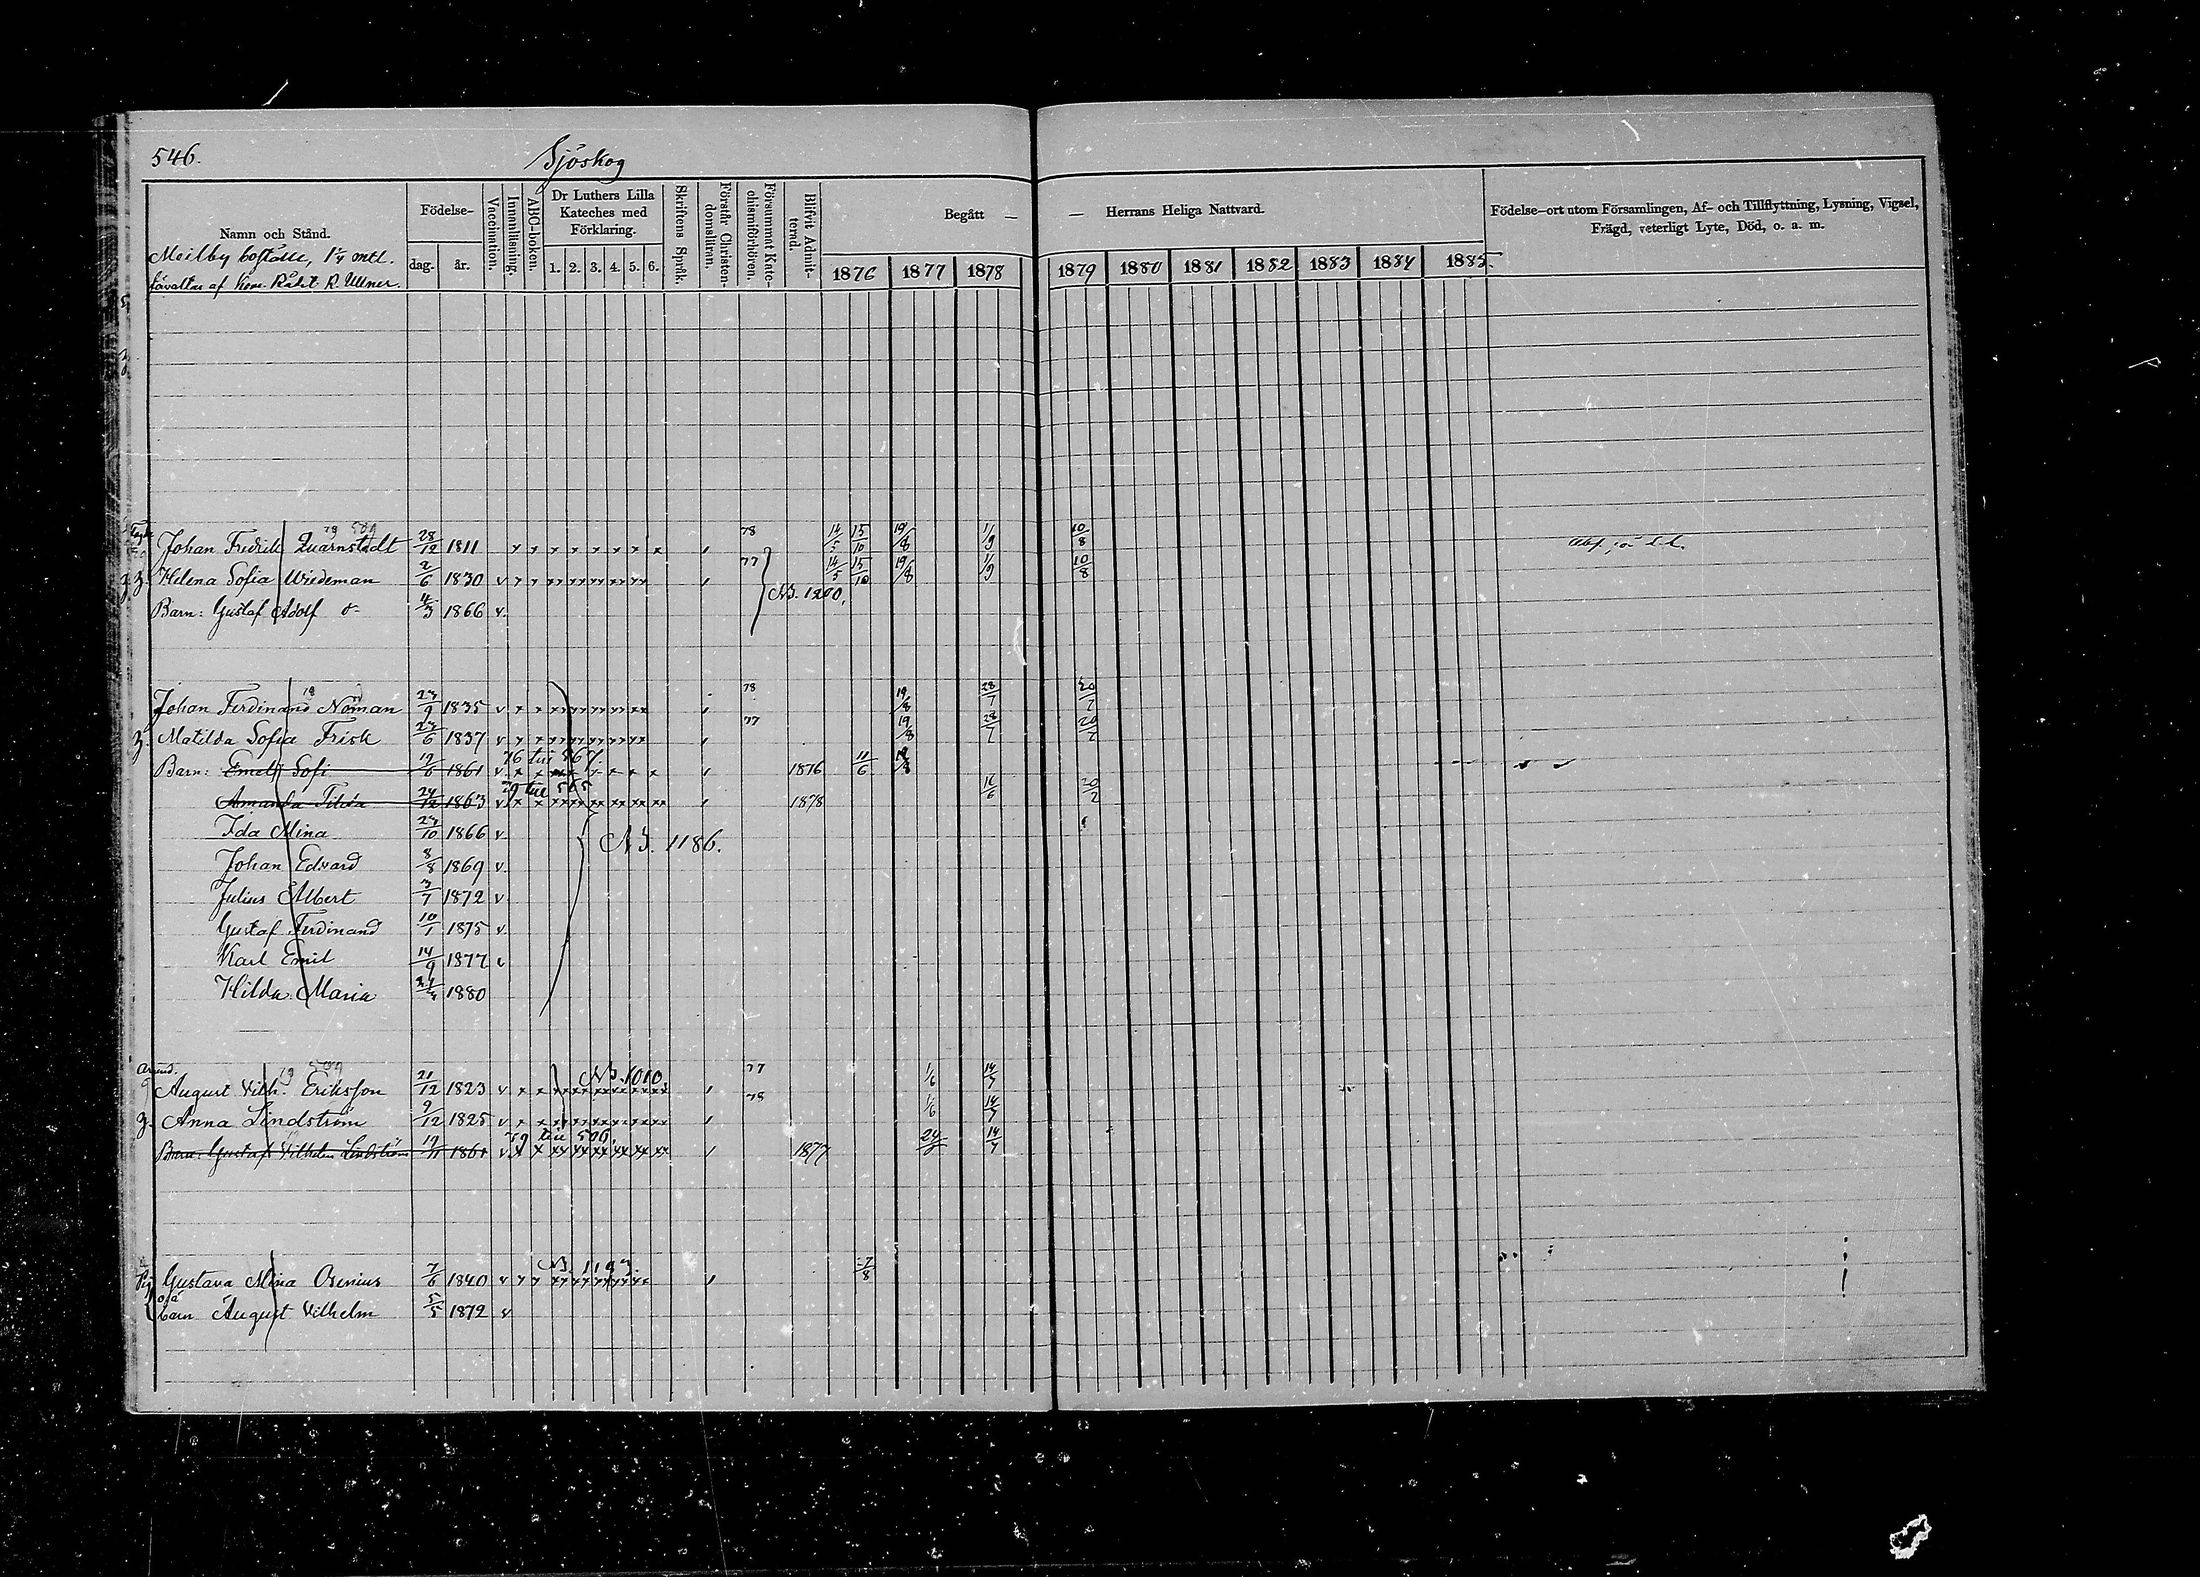 546.
Sjöskog
Namn och Stånd.
Meilby boställe, 1/4 mtl.
förvaltas af
Födelse-
dag. år.
Vaccination.
Innanläsning.
ABC-boken.
Dr Luthers Lilla
Kateches med
Förklaring.
1. 2. 3. 4. 5. 6.
Skriftens Språk.
Förstår Christen-
domsläran.
Försummat Kate-
chismiförhören.
Blifvit Admit-
terad.
Begått —
— Herrans Heliga Nattvard.
1876 1877 1878 1879 1880 1881 1882 1883 1884 1885.
Födelse-ort utom Församlingen, Af- och Tillflyttning, Lysning, Vigsel,
Frägd, veterligt Lyte, Död, o. a. m.
Johan Fredrik Quarnstedt 28/12 1811 78 14/5 15/10 19/8 1/9 10/8
Helena Sofia Wiedeman 2/6 1830 v 77 14/5 15/10 19/8 1/9 10/8
NB. 1200.
Barn: Gustaf Adolf 4/3 1866 v.
Johan Ferdinand Noman 27/9 1835 v 78 19/8 28/7 20/7
Matilda Sofia Frisk 23/6 1837 v 77 19/8 28/7 20/7
76 till 567.
Barn: Emely Sofi 19/6 1861 v 1876 11/6 19/8
79 till 565
Amanda Tilda 24/12 1863 v 1878 16/6
Ida Mina 27/10 1866 v
NB. 1186.
Johan Edvard 8/8 1869 v.
Julius Albert 3/7 1872 v
Gustaf Ferdinand 10/1 1875 v.
Karl Emil 14/9 1877
Hilda Maria 1880
NB. 1010.
August Vilh. Eriksson 21/12 1823 v 77 1/6 14/7
Anna Lindström 9/12 1825 v 78 1/6 14/7
79 till 506.
Barn: Gustaf Vilhelm Lindström 1861 v 1877 14/7
Gustava Mina Osenius 7/6 1840 v
barn August Vilhelm 5/5 1872 v